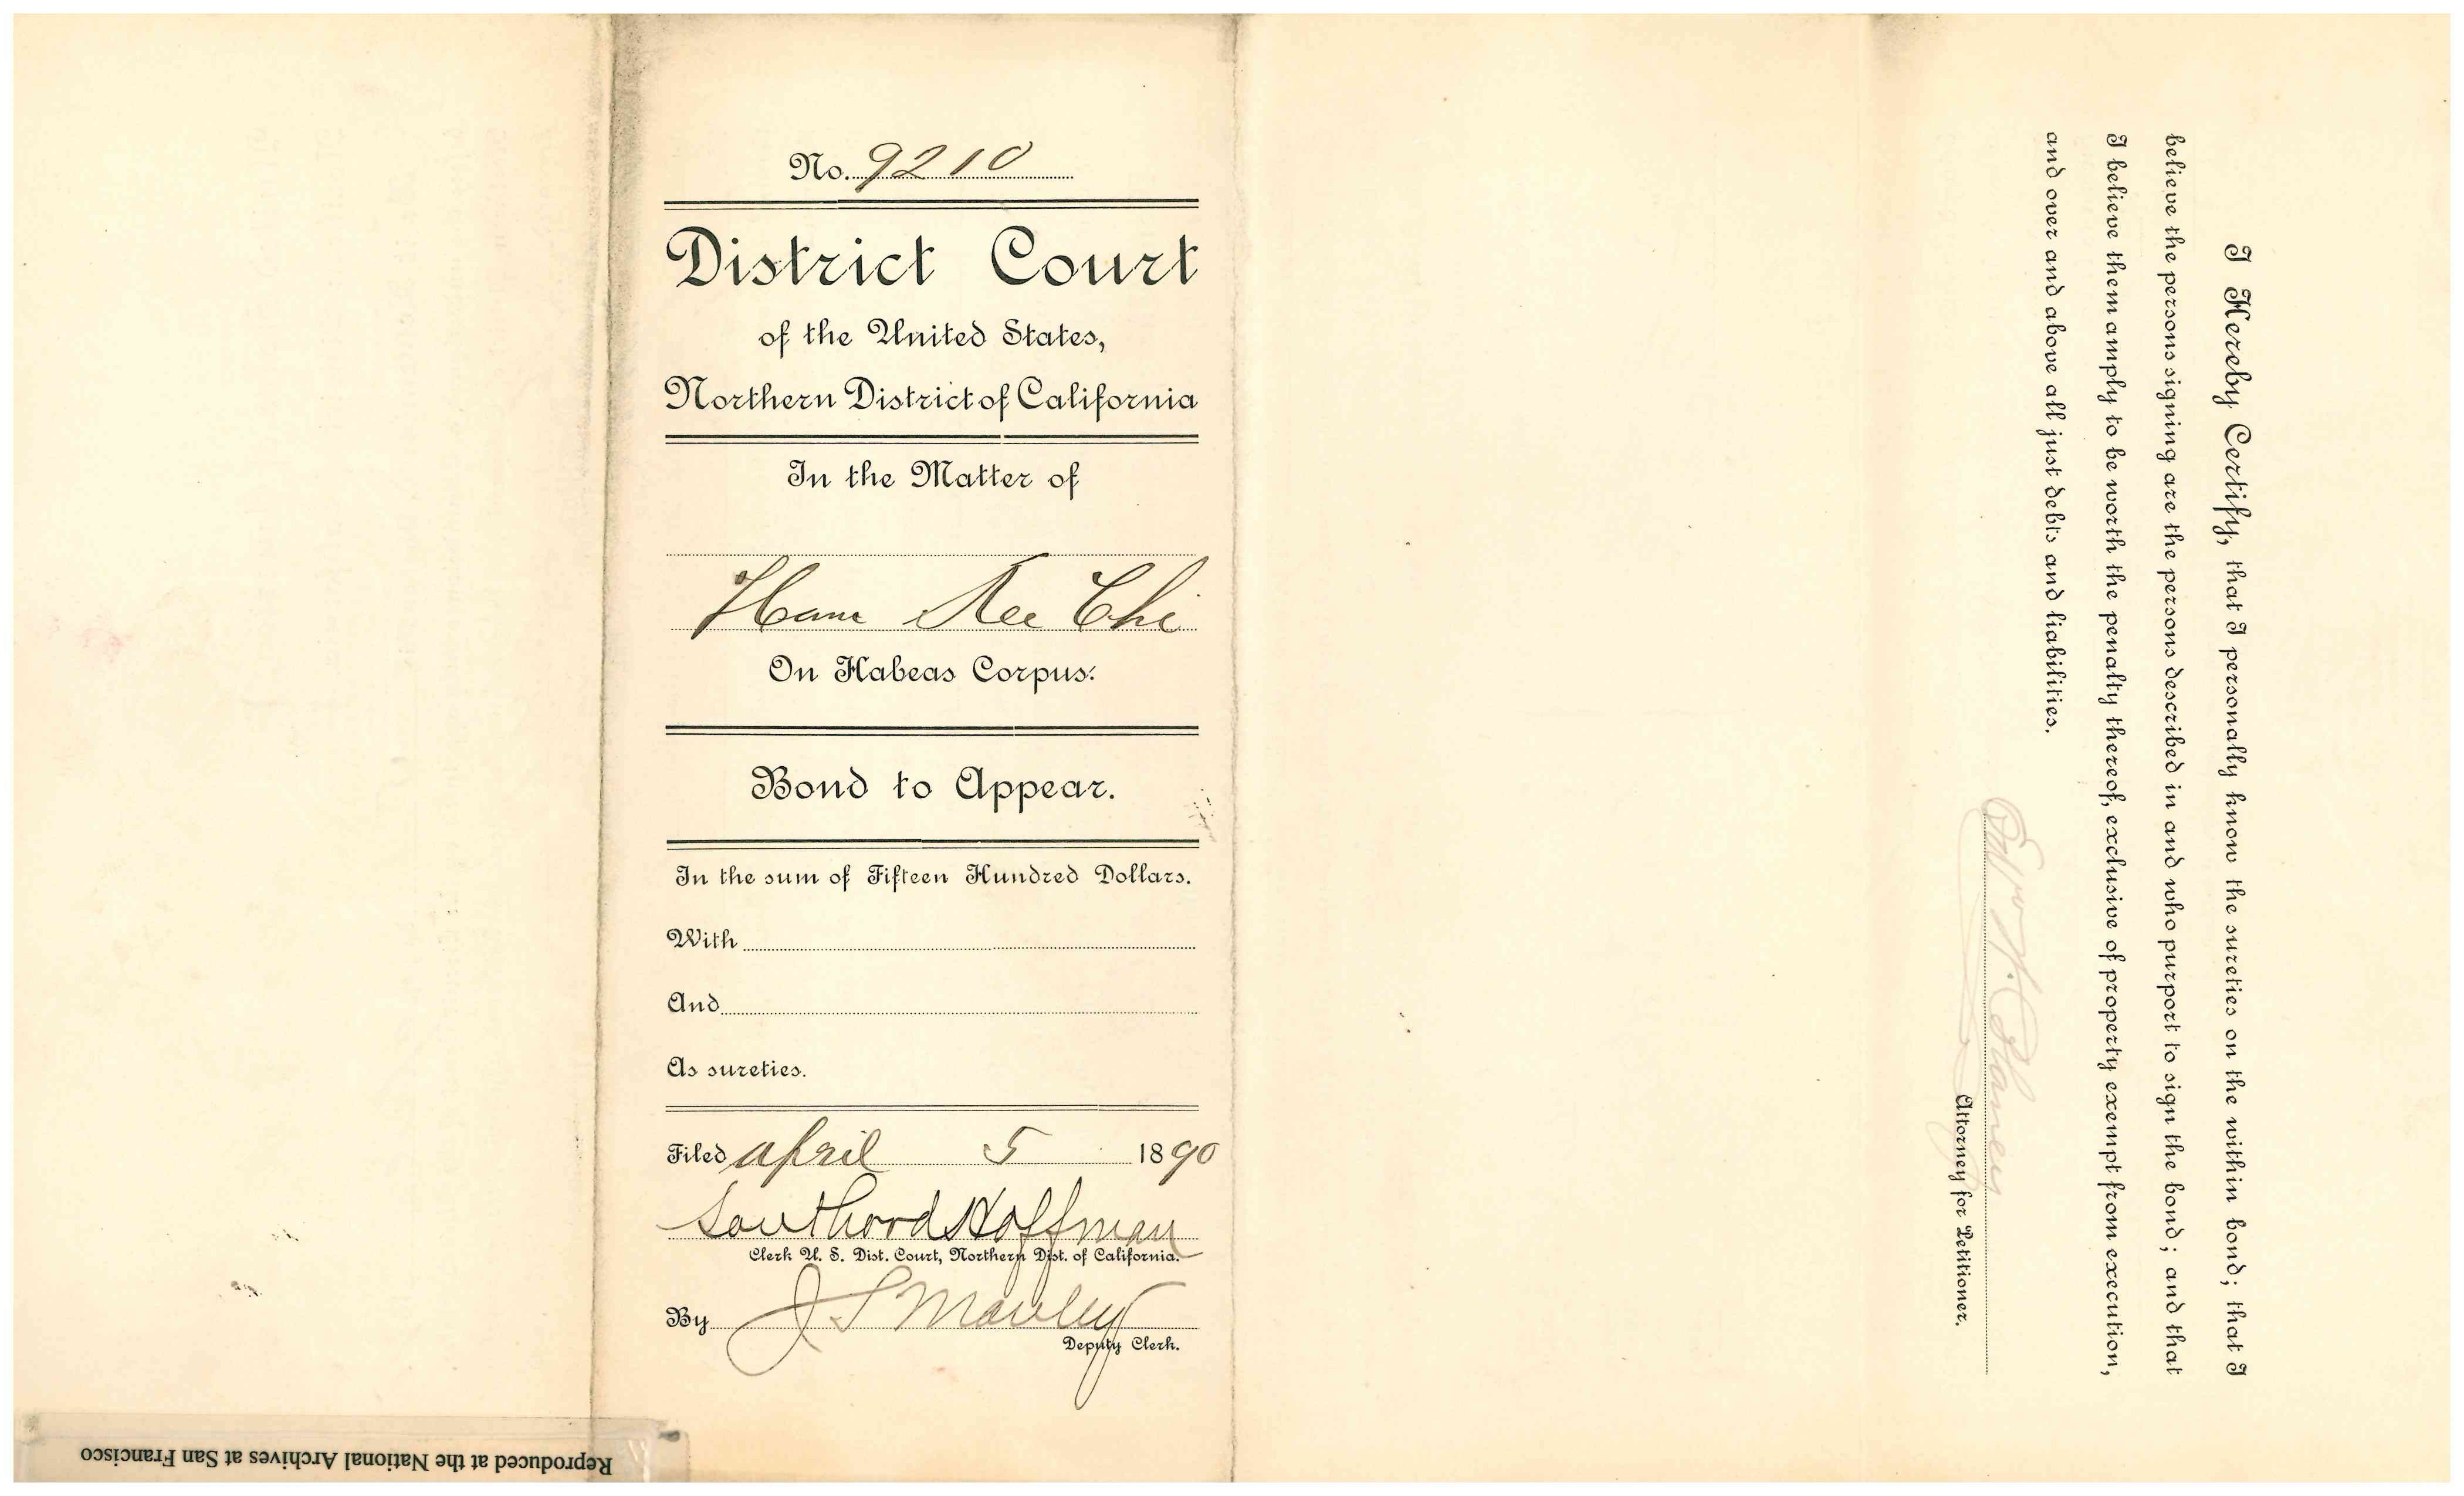 No. 9210
District Court
of the United States,
Northern District of California
In the Matter of
Ham Kee Chi
On Habeas Corpus.
Bond to Appear.
In the sum of Fifteen Hundred Dollars.
With
And
As sureties.
Filed April 5 1890
Southard Hoffman
Clerk U. S. Dist. Court, Northern Dist. of California.
By J S Manley
Deputy Clerk.
I Hereby Certify, that I personally know the sureties on the within bond; that I
believe the persons signing are the persons described in and who purport to sign the bond; and that
I believe them amply to be worth the penalty thereof, exclusive of property exempt from execution,
and over and above all just debts and liabilities.
Attorney for Petitioner.
Reproduced at the National Archives at San Francisco